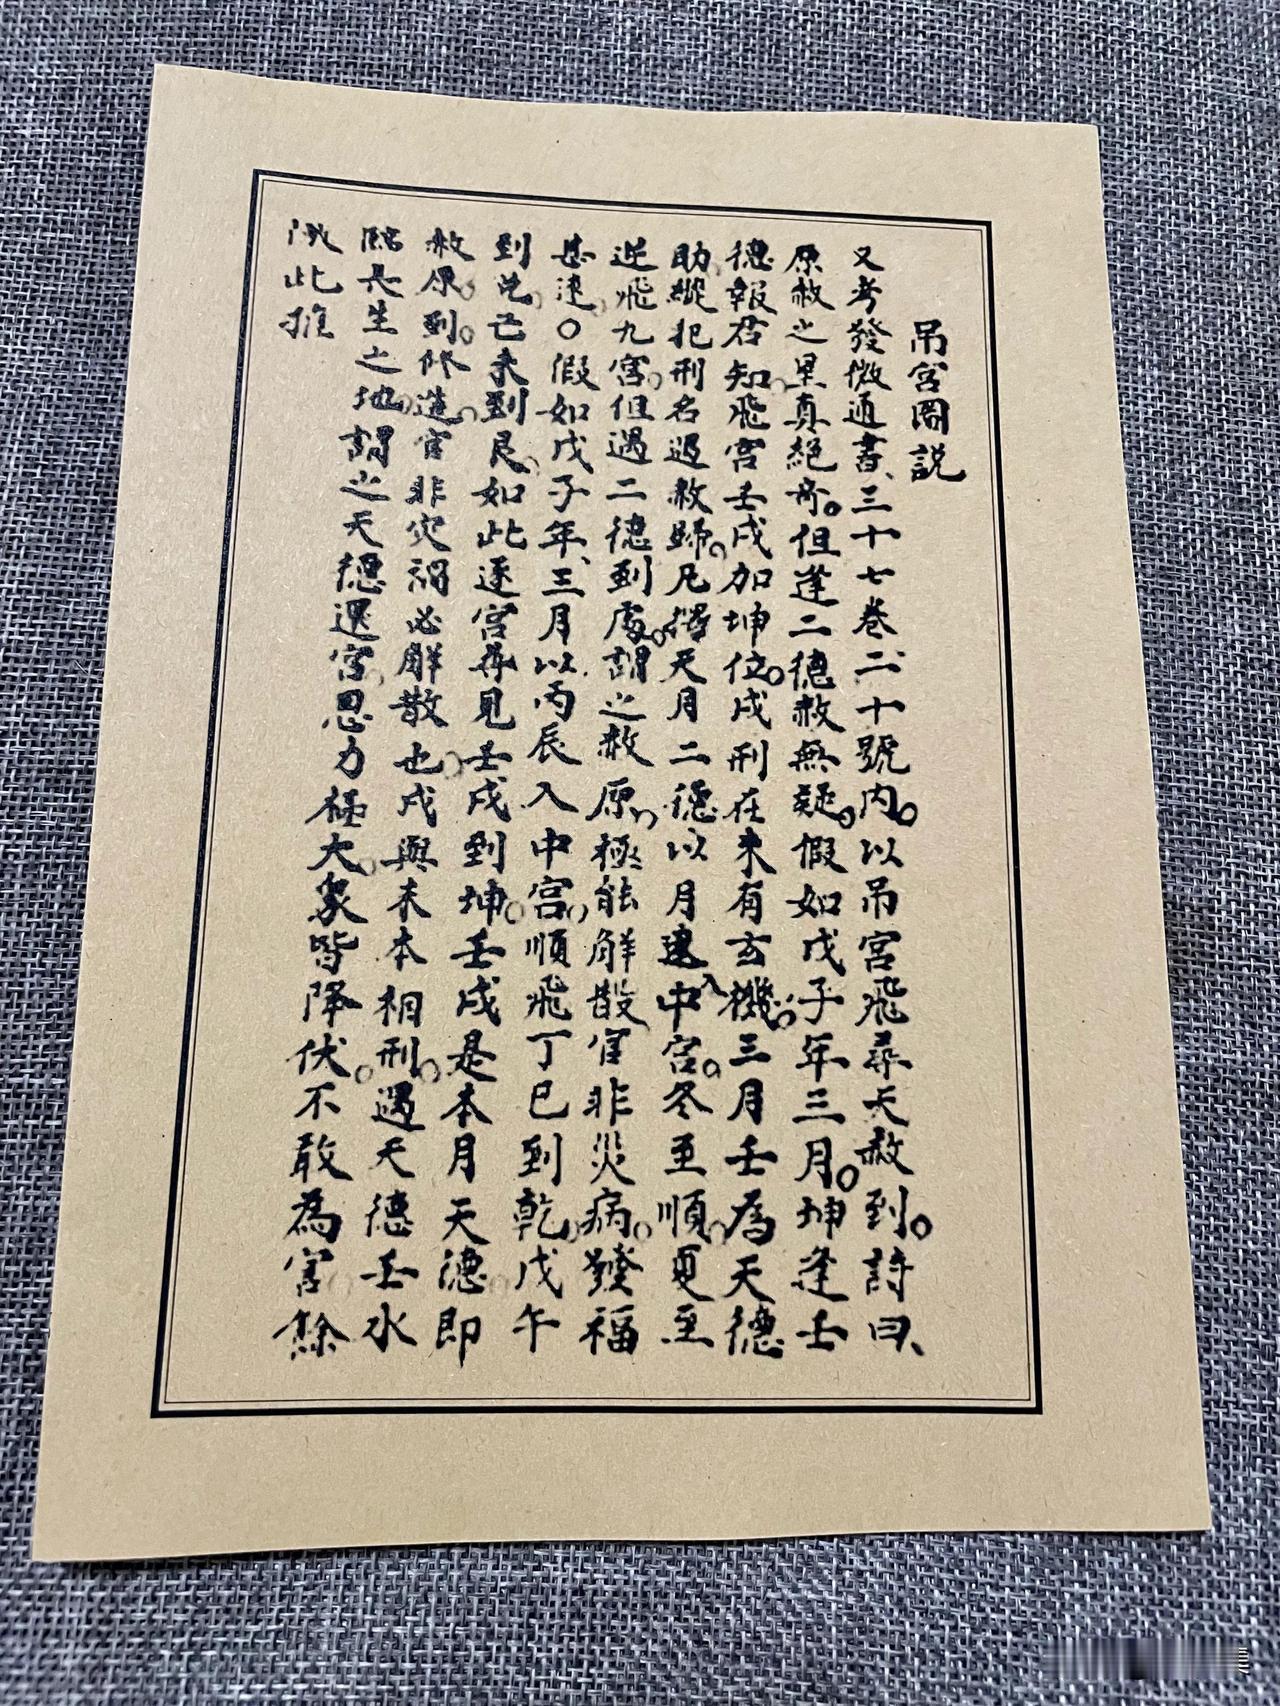 吊宮圖説
又考發微通書、三十七卷二十號內。以吊宮飛尋天赦到。詩曰、
原赦之星真絕奇。但逢二德赦無疑。假如戊子年三月。坤逢壬
德報君知。飛宮壬戌加坤位。戌刑在未有玄機。三月壬為天德
助。縱犯刑名遇赦歸。凡得天月二德以月建入中宮。冬至順。夏至
逆飛九宮。但遇二德到處。謂之赦原。極能解散官非災病。發福
甚速。〇假如戊子年、三月以丙辰入中宮。順飛丁巳到乾。戊午
到兌。己未到艮。如此逐宮再見壬戌到坤。壬戌是本月天德。即
赦原。到。修造。官非灾禍必解散也。戌與未本相刑。遇天德壬水
臨長生之地。謂之天德還宮。恩力極大。衆皆降伏。不敢為害。餘
倣此推